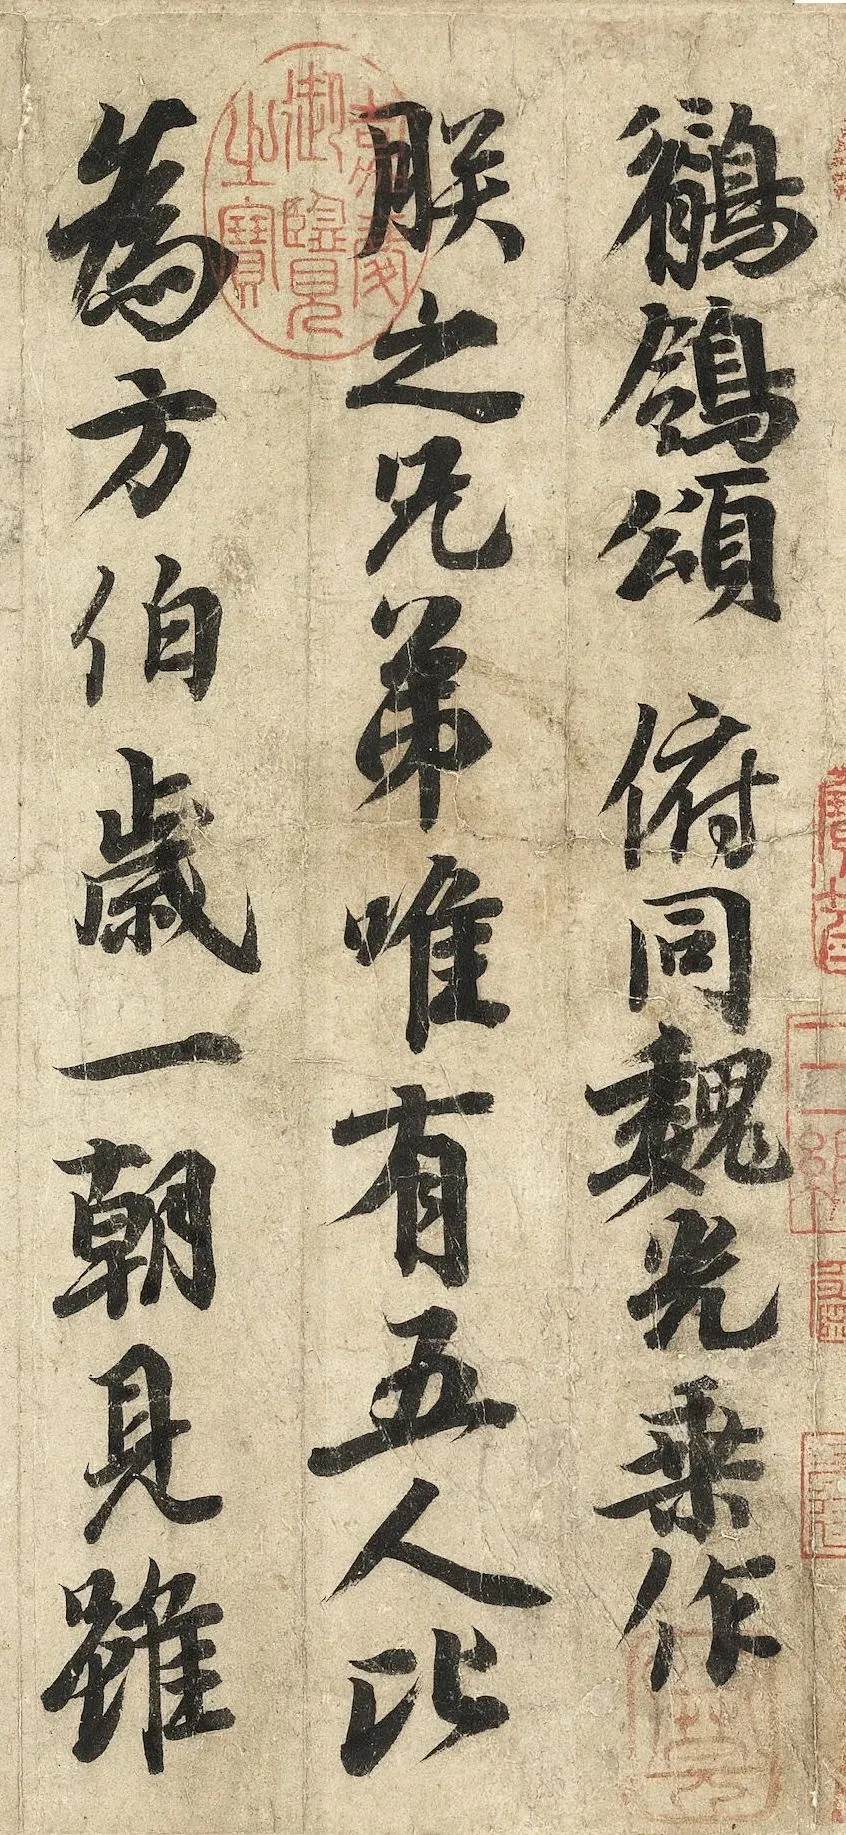 鶺鴒頌 俯同魏光乗作
朕之兄弟唯有五人比
為方伯歲一朝見雖
嘉慶御覽之寶